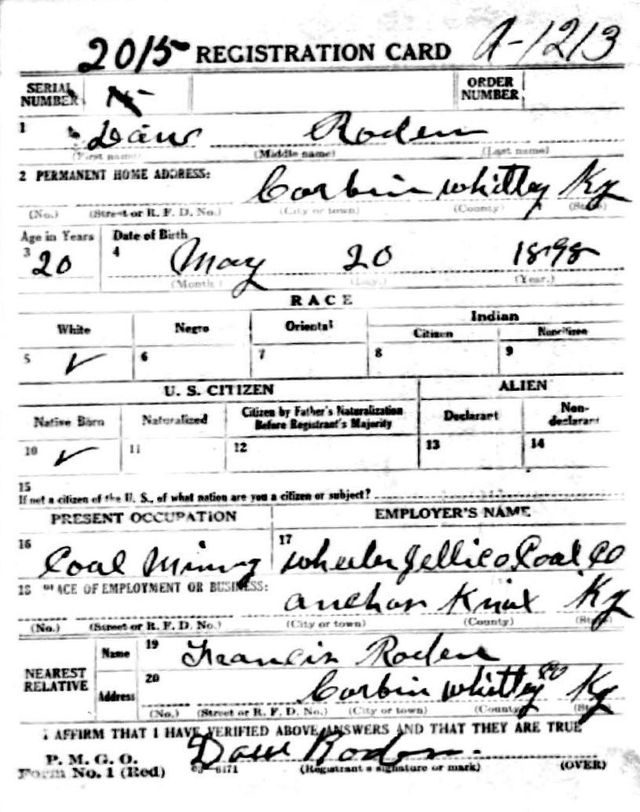 2015 REGISTRATION CARD A-1213
SERIAL NUMBER
ORDER NUMBER
1 Dave Roden
(First name) (Middle name) (Last name)
2 PERMANENT HOME ADDRESS:
Corbin Whitley Ky
(No.) (Street or R. F. D. No.) (City or town) (County) (State)
Age in Years Date of Birth
3 20 4 May 20 1898
(Month) (Day.) (Year.)
RACE
White Negro Oriental Indian
Citizen Noncitizen
5 ✓ 6 7 8 9
U. S. CITIZEN ALIEN
Native Born Naturalized Citizen by Father's Naturalization Before Registrant's Majority Declarant Non-declarant
10 ✓ 11 12 13 14
15
If not a citizen of the U. S., of what nation are you a citizen or subject?
PRESENT OCCUPATION EMPLOYER'S NAME
16 Coal Mining 17 Wheeler Jellico Coal Co
18 PLACE OF EMPLOYMENT OR BUSINESS:
Anchor Knox Ky
(No.) (Street or R. F. D. No.) (City or town) (County) (State)
NEAREST RELATIVE
Name 19 Francis Roden
Address 20 Corbin Whitley Co Ky
(No.) (Street or R. F. D. No.) (City or town) (County) (State)
I AFFIRM THAT I HAVE VERIFIED ABOVE ANSWERS AND THAT THEY ARE TRUE
P. M. G. O.
Form No. 1 (Red) Dave Roden
(Registrant's signature or mark) (OVER)